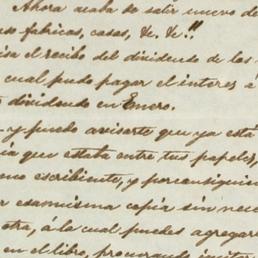 Ahora acaba de salir nuevo de
uso fabricas, casas, &. &.!!
isa el recibo del dividendo de los
cual pudo pagar el interes á
dividendo en Enero.
y puedo avisarte que ya está
ia que estaba entre tus papeles,
omo escribiente, y por consiguien
esa misma copia sin nece
otra, á la cual puedes agregar
en el libro, procurando imitar